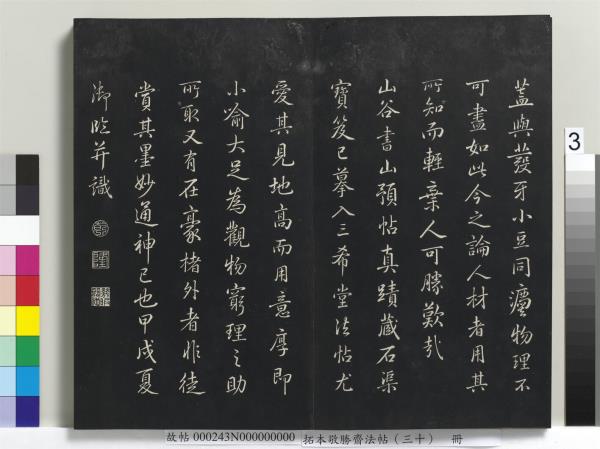 蓋與發牙小豆同癭物理不
可盡如此今之論人材者用其
所知而輕棄人可勝歎哉
山谷書山預帖真蹟藏石渠
寶笈已摹入三希堂法帖尤
愛其見地高而用意厚即
小喻大足為觀物窮理之助
所取又有在豪楮外者非徒
賞其墨妙通神已也甲戌夏
御臨并識
3
故帖 000243N000000000 拓本敬勝齋法帖（三十） 冊